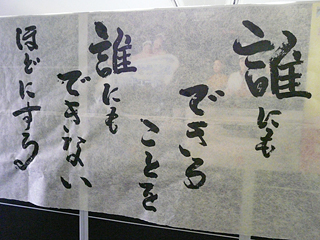 誰にも
できる
ことを
誰にも
できない
ほどにする